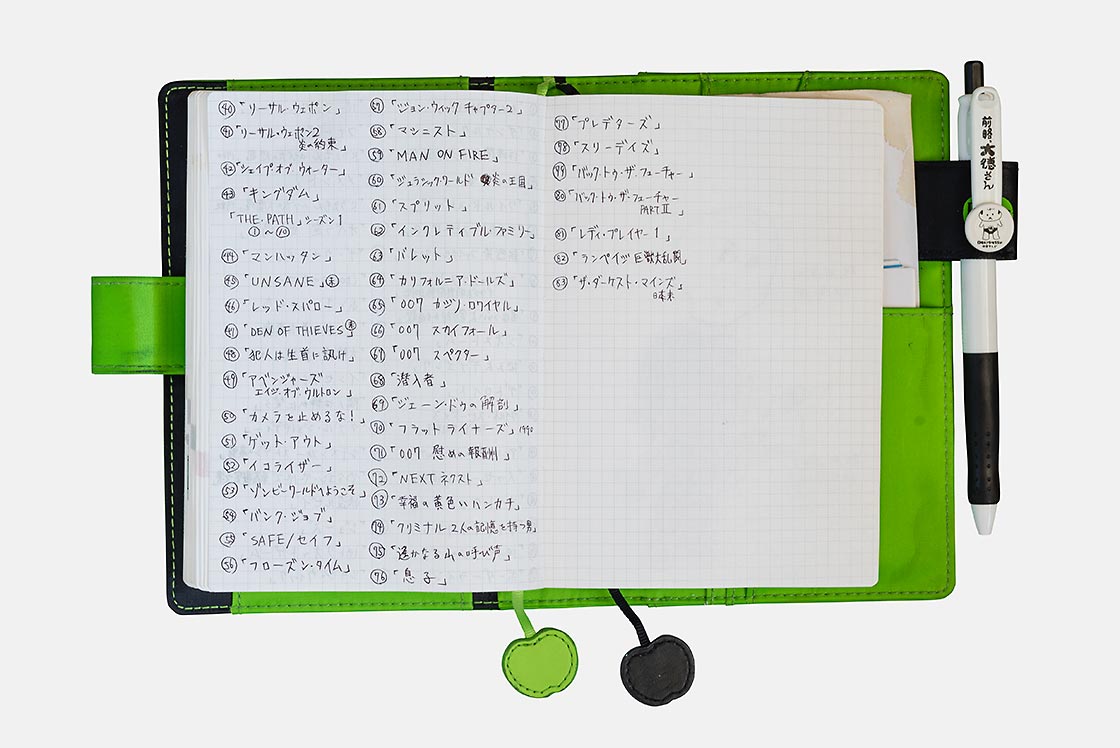 ㊵「リーサル・ウェポン」
㊶「リーサル・ウェポン2
炎の約束」
㊷「シェイプ オブ ウォーター」
㊸「キングダム」
「THE・PATH」シーズン1
①〜⑩
㊹「マンハッタン」
㊺「UNSANE」
㊻「レッド・スパロー」
㊼「DEN OF THIEVES」
㊽「犯人は生首に訊け」
㊾「アベンジャーズ
エイジ・オブ・ウルトロン」
㊿「カメラを止めるな!」
51「ゲット・アウト」
52「イコライザー」
53「ゾンビーワールドへようこそ」
54「バンク・ジョブ」
55「SAFE/セイフ」
56「フローズン・タイム」
「ジョン・ウィック チャプター2」
58「マシニスト」
59「MAN ON FIRE」
60「ジュラシック・ワールド 炎の王国」
61「スプリット」
62「インクレディブル・ファミリー」
63「バレット」
64「カリフォルニア・ドールズ」
65「007 カジノ・ロワイヤル」
66「007 スカイフォール」
67「007 スペクター」
68「潜入者」
69「ジェーン・ドゥの解剖」
70「フラットライナーズ」1990
71「007 慰めの報酬」
72「NEXT ネクスト」
73「幸福の黄色いハンカチ」
74「クリミナル 2人の記憶を持つ男」
75「遥かなる山の呼び声」
76「息子」
「プレデターズ」
「スリーデイズ」
「バック・トゥ・ザ・フューチャー」
80「バック・トゥ・ザ・フューチャー
PARTⅡ」
「レディ・プレイヤー1」
「ランペイジ 巨獣大乱闘」
「ザ・ダーケスト・マインズ」
日本未
前略
大徳さん